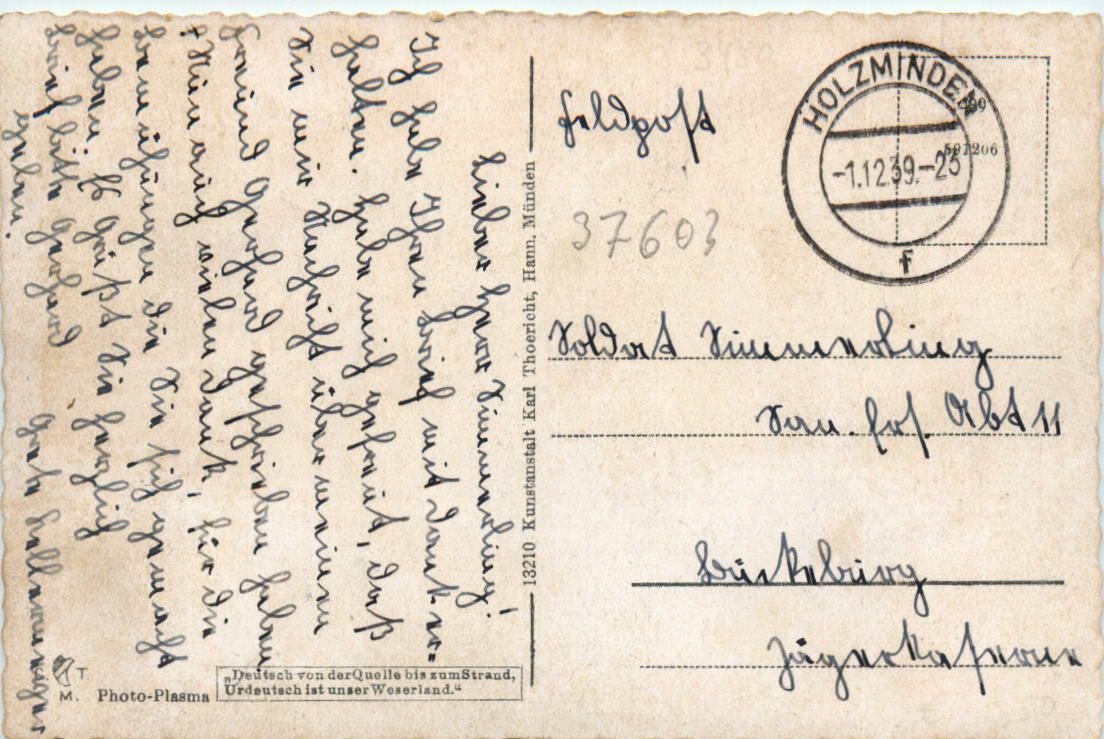 Lieber Herr Simmerling!
Ich habe Ihren Brief mit Dank er=
halten. Habe mich gefreut, daß
Sie mir Nachricht über meinen
Freund Gerhard geschrieben haben
Nun auch vielen Dank, für die
Bemühungen die Sie sich gemacht
haben. Es grüßt Sie herzlich
Brief bitte Gerhard
geben.
T
M. Photo-Plasma
„Deutsch von der Quelle bis zum Strand,
Urdeutsch ist unser Weserland.“
13210 Kunstanstalt Karl Thoericht, Hann. Münden
Feldpost
37603
HOLZMINDEN
-1.12.39.-23
f
Soldat Simmerling
San. Ers. Abt 11
Bückeburg
Jägerkaserne